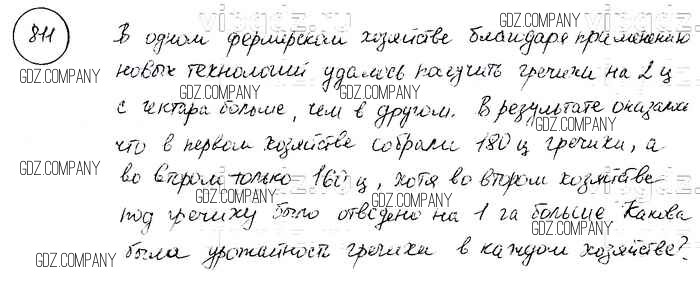 811 В одном фермерском хозяйстве благодаря применению
новых технологий удалось получить гречихи на 2 ц
с гектара больше, чем в другом. В результате оказалось
что в первом хозяйстве собрали 180 ц гречихи, а
во втором только 160 ц, хотя во втором хозяйстве
под гречиху было отведено на 1 га больше. Какова
была урожайность гречихи в каждом хозяйстве?
GDZ.COMPANY
GDZ.COMPANY
GDZ.COMPANY
GDZ.COMPANY
GDZ.COMPANY
GDZ.COMPANY
GDZ.COMPANY
GDZ.COMPANY
GDZ.COMPANY
GDZ.COMPANY
GDZ.COMPANY
GDZ.COMPANY
GDZ.COMPANY